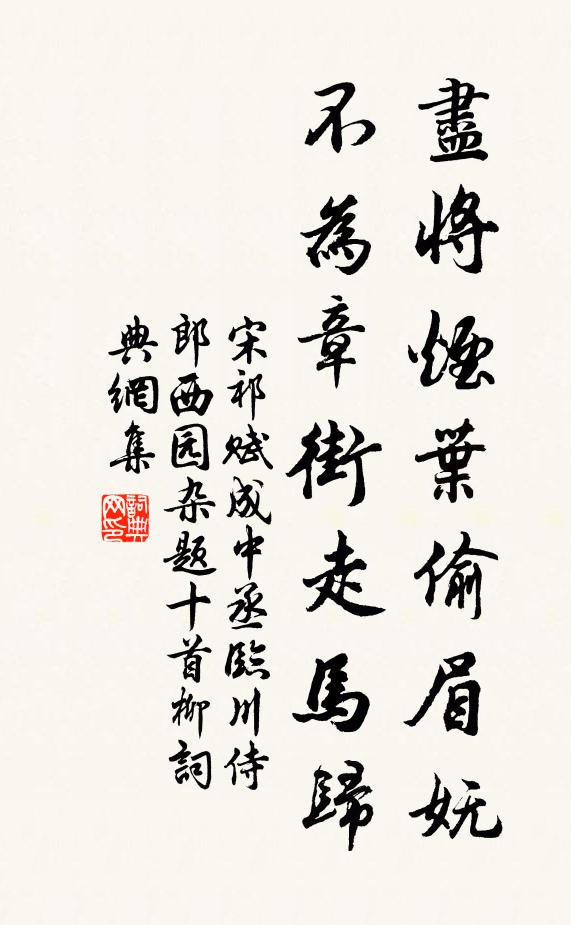 盡將煙葉偷眉妩
不為章街走馬歸
宋祁赋成中丞臨川侍
郎西园杂题十首柳詞
典網集
詞典网印